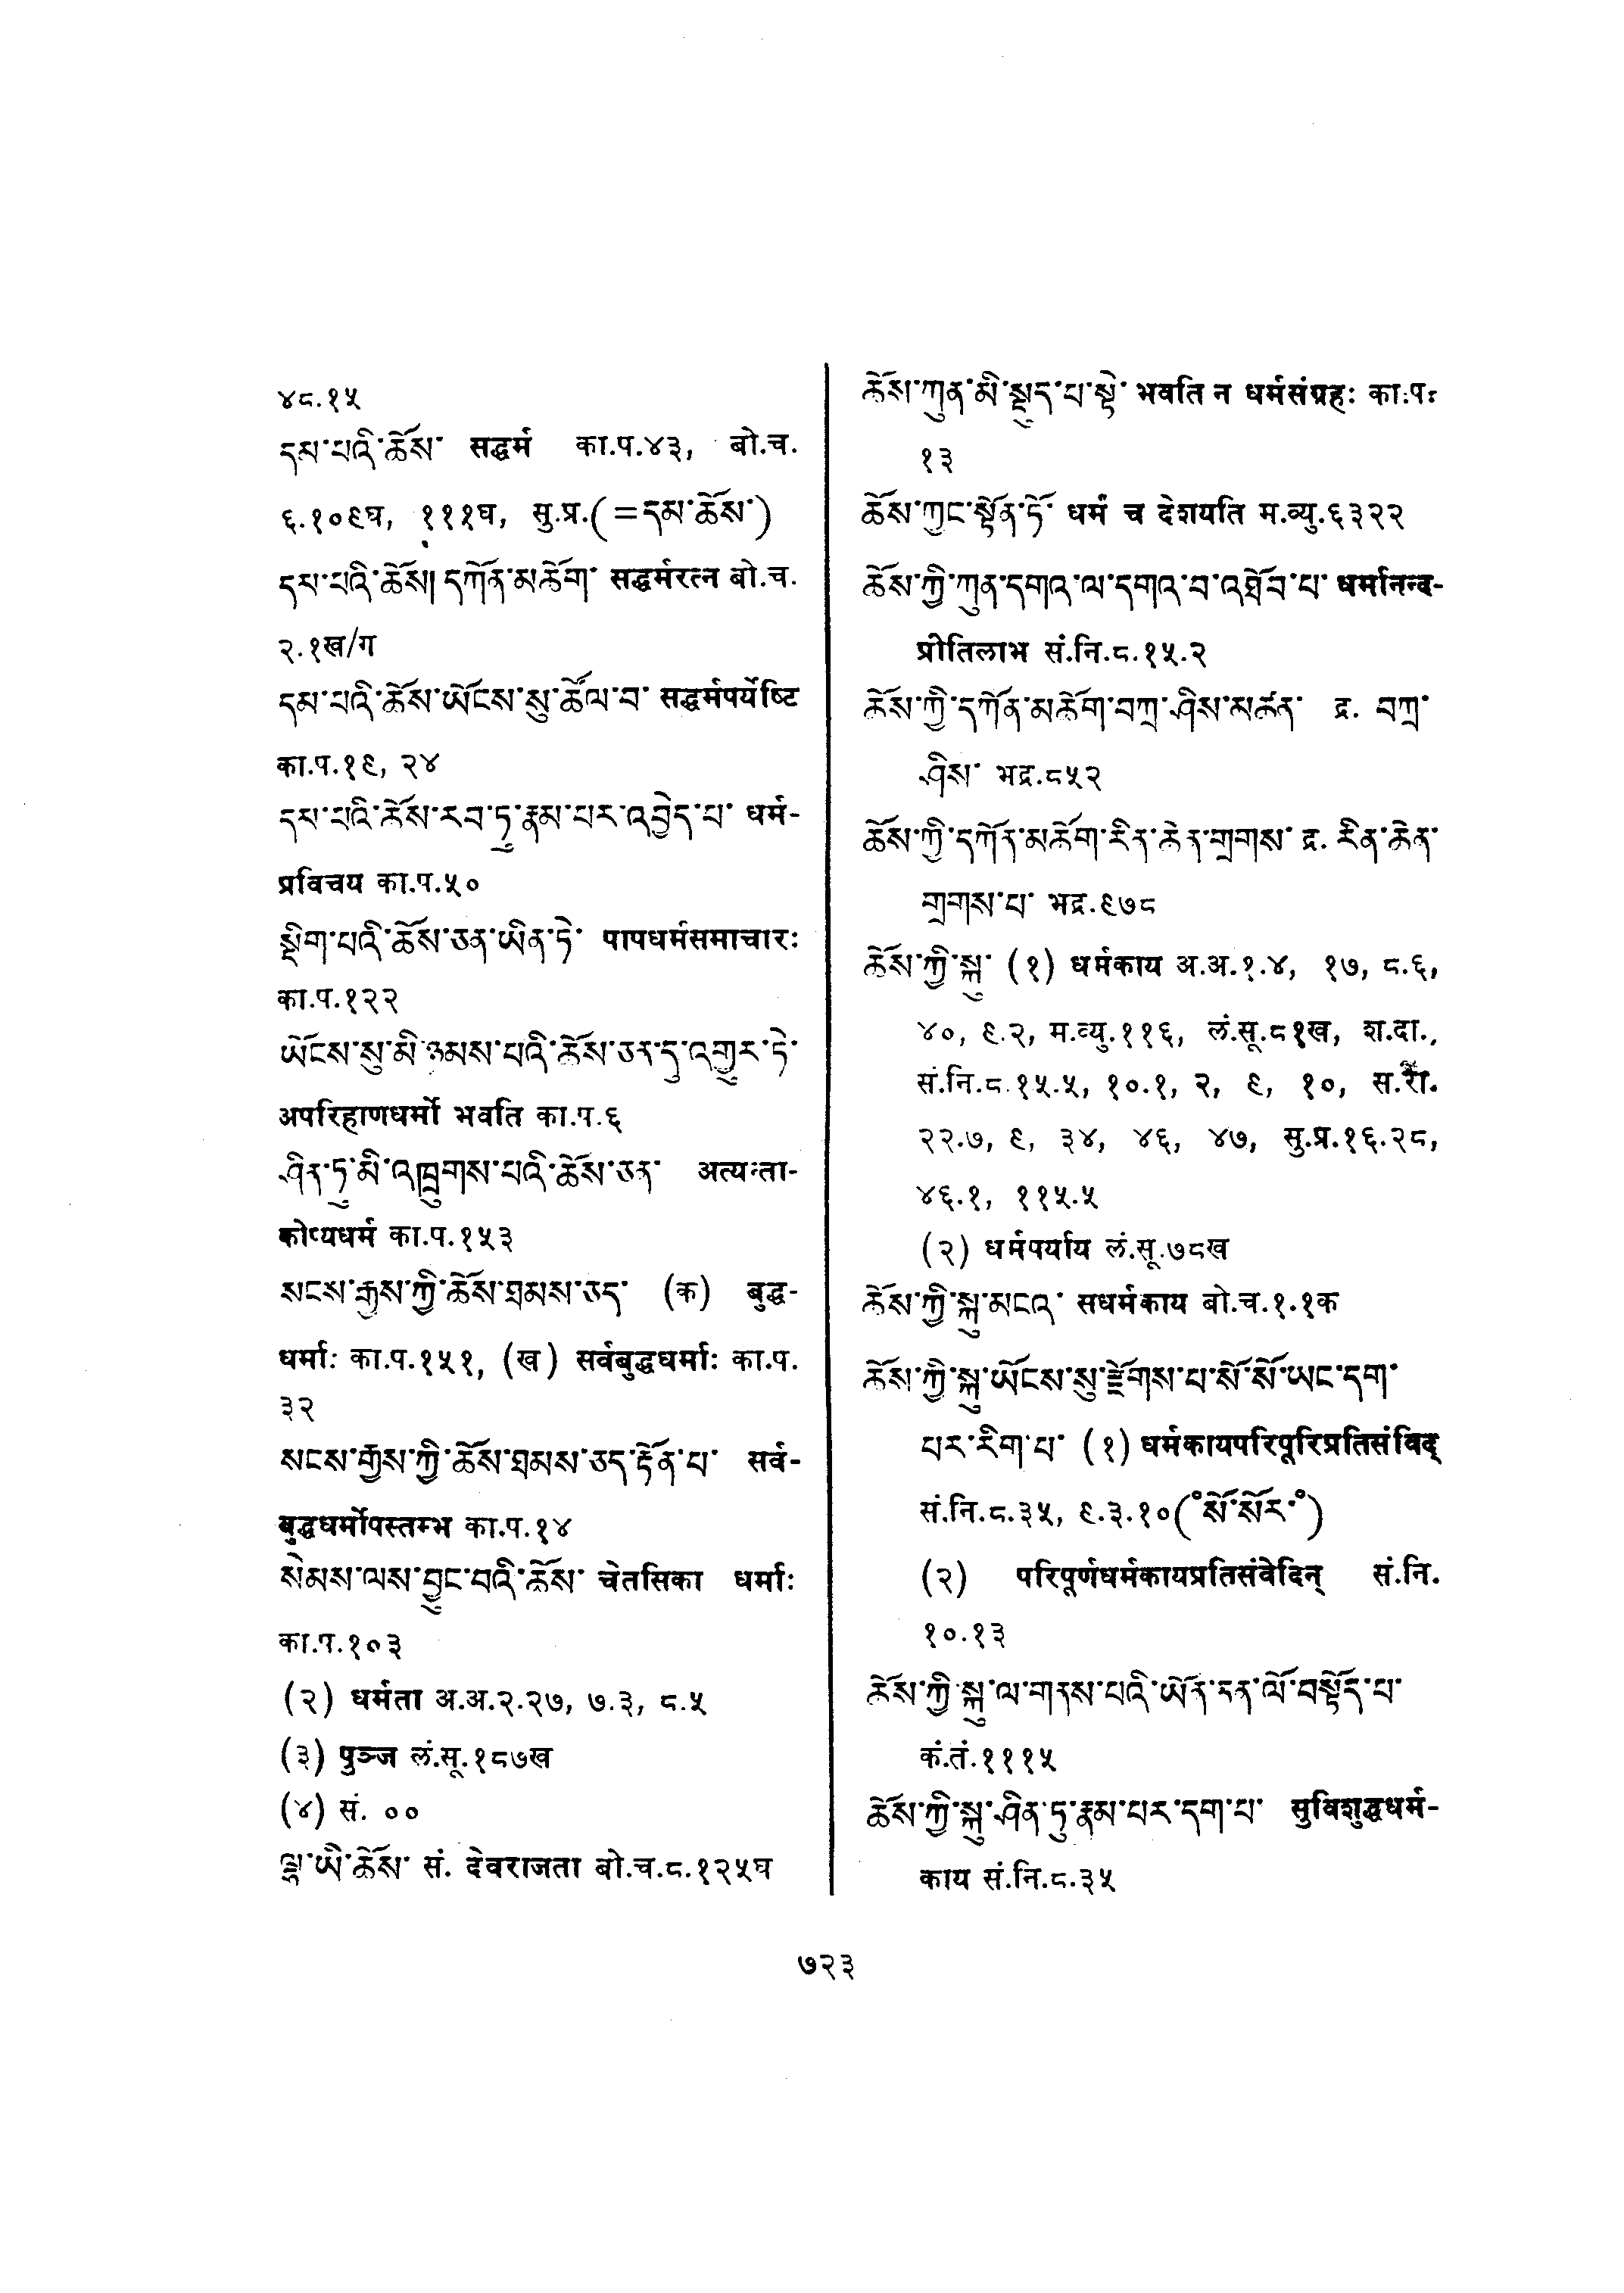 ४८.१५
དམ་པའི་ཆོས་ सद्धर्म का.प.४३, बो.च.
६.१०९घ, १११घ, सु.प्र.(=དམ་ཆོས་)
དམ་པའི་ཆོས། དཀོན་མཆོག་ सद्धर्मरत्न बो.च.
२.१ख/ग
དམ་པའི་ཆོས་ཡོངས་སུ་ཚོལ་བ་ सद्धर्मपर्येष्टि
का.प.१९, २४
དམ་པའི་ཆོས་རབ་ཏུ་རྣམ་པར་འབྱེད་པ་ धर्म-
प्रविचय का.प.५०
སྡིག་པའི་ཆོས་ཅན་ཡིན་ཏེ་ पापधर्मसमाचारः
का.प.१२२
ཡོངས་སུ་མི་ཉམས་པའི་ཆོས་ཅན་དུ་འགྱུར་ཏེ་
अपरिहाणधर्मो भवति का.प.६
ཤིན་ཏུ་མི་འཁྲུགས་པའི་ཆོས་ཅན་ अत्यन्ता-
कोप्यधर्म का.प.१५३
སངས་རྒྱས་ཀྱི་ཆོས་ཐམས་ཅད་ (क) बुद्ध-
धर्माः का.प.१५१, (ख) सर्वबुद्धधर्माः का.प.
३२
སངས་རྒྱས་ཀྱི་ཆོས་ཐམས་ཅད་རྟོན་པ་ सर्व-
बुद्धधर्मोपस्तम्भ का.प.१४
སེམས་ལས་བྱུང་བའི་ཆོས་ चेतसिका धर्माः
का.प.१०३
(२) धर्मता अ.अ.२.२७, ७.३, ८.५
(३) पुञ्ज लं.सू.१८७ख
(४) सं. ००
ལྷ་ཡི་ཆོས་ सं. देवराजता बो.च.८.१२५घ
ཆོས་ཀུན་མི་སྡུད་པ་སྟེ་ भवति न धर्मसंग्रहः का.प.
१३
ཆོས་ཀྱང་སྟོན་ཏོ་ धर्मं च देशयति म.व्यु.६३२२
ཆོས་ཀྱི་ཀུན་དགའ་ལ་དགའ་བ་འཐོབ་པ་ धर्मानन्द-
प्रीतिलाभ सं.नि.८.१५.२
ཆོས་ཀྱི་དཀོན་མཆོག་བཀྲ་ཤིས་མཚན་ द्र. བཀྲ་
ཤིས་ भद्र.८५२
ཆོས་ཀྱི་དཀོན་མཆོག་རིན་ཆེན་གྲགས་ द्र. རིན་ཆེན་
གྲགས་པ་ भद्र.९७८
ཆོས་ཀྱི་སྐུ་ (१) धर्मकाय अ.अ.१.४, १७, ८.६,
४०, ९.२, म.व्यु.११६, लं.सू.८१ख, श.दा.,
सं.नि.८.१५.५, १०.१, २, ९, १०, स.रा.
२२.७, ९, ३४, ४६, ४७, सु.प्र.१६.२८,
४६.१, ११५.५
(२) धर्मपर्याय लं.सू.७८ख
ཆོས་ཀྱི་སྐུ་མངའ་ सधर्मकाय बो.च.१.१क
ཆོས་ཀྱི་སྐུ་ཡོངས་སུ་རྫོགས་པ་སོ་སོ་ཡང་དག་
པར་རིག་པ་ (१) धर्मकायपरिपूरिप्रतिसंविद्
सं.नि.८.३५, ९.३.१०(°སོ་སོར་°)
(२) परिपूर्णधर्मकायप्रतिसंवेदिन् सं.नि.
१०.१३
ཆོས་ཀྱི་སྐུ་ལ་གནས་པའི་ཡོན་ཏན་ལོ་བསྟོད་པ་
कं.तं.१११५
ཆོས་ཀྱི་སྐུ་ཤིན་ཏུ་རྣམ་པར་དག་པ་ सुविशुद्धधर्म-
काय सं.नि.८.३५
७२३